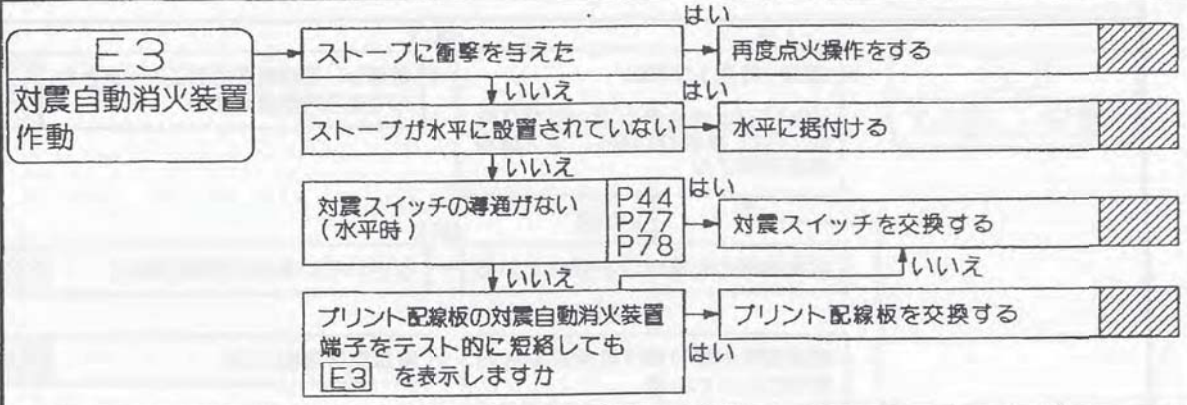 E3
対震自動消火装置
作動
ストーブに衝撃を与えた
はい
再度点火操作をする
いいえ
ストーブが水平に設置されていない
はい
水平に据付ける
いいえ
対震スイッチの導通がない
(水平時)
P44
P77
P78
はい
対震スイッチを交換する
いいえ
いいえ
プリント配線板の対震自動消火装置
端子をテスト的に短絡しても
E3 を表示しますか
はい
プリント配線板を交換する